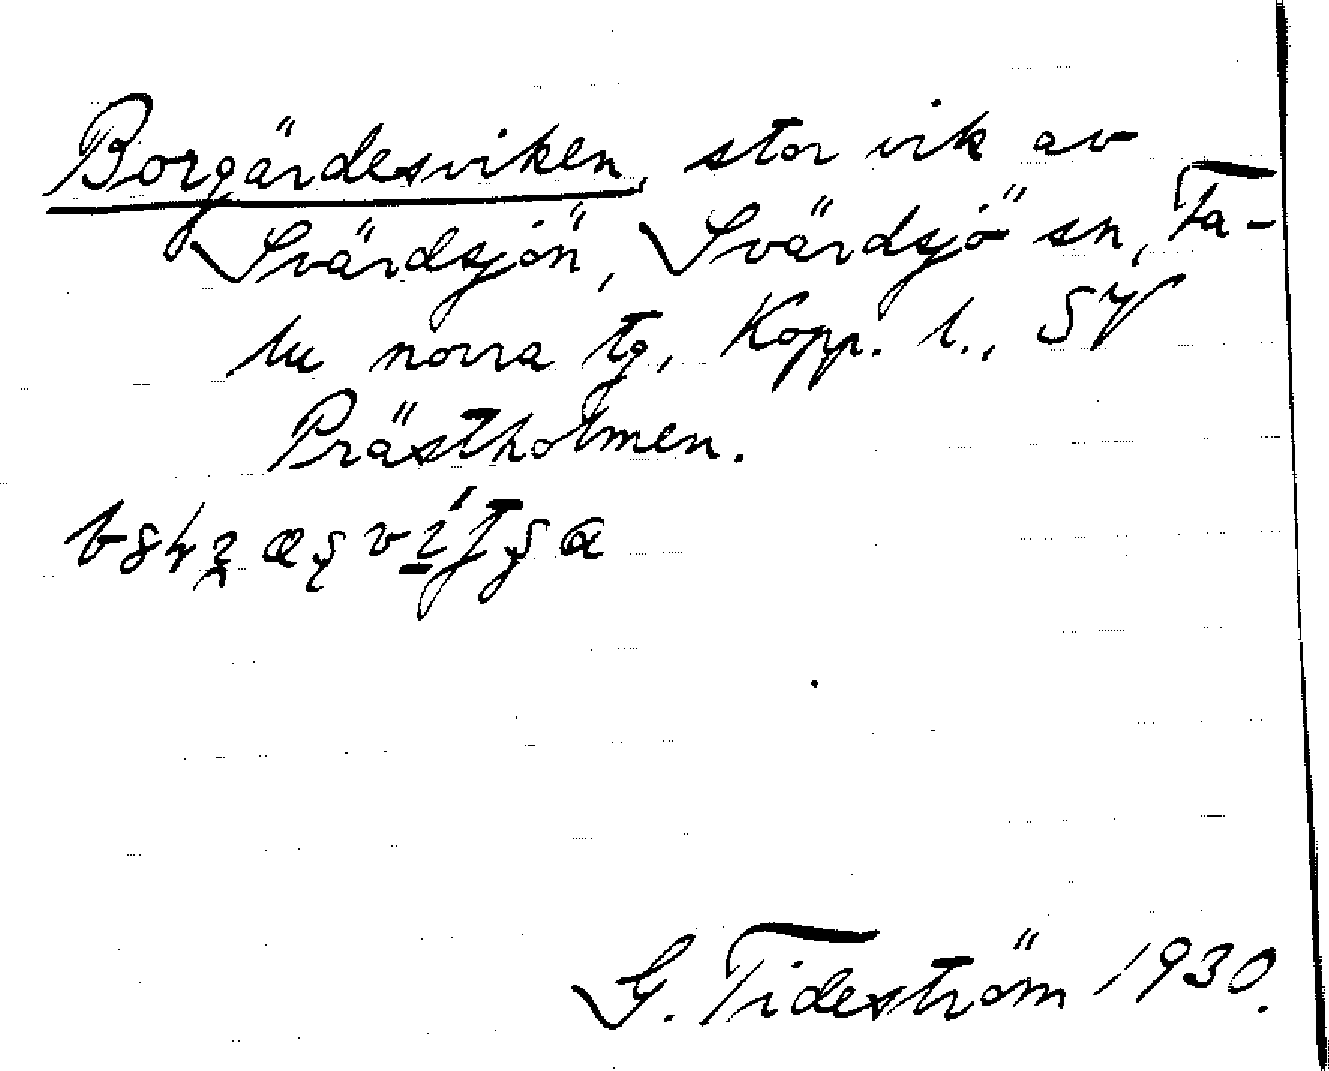 Borgärdesviken, stor vik av
Svärdsjön, Svärdsjö sn, Fa-
lu norra tg, Kopp. l., SV
Prästholmen.
G. Tideström 1930.